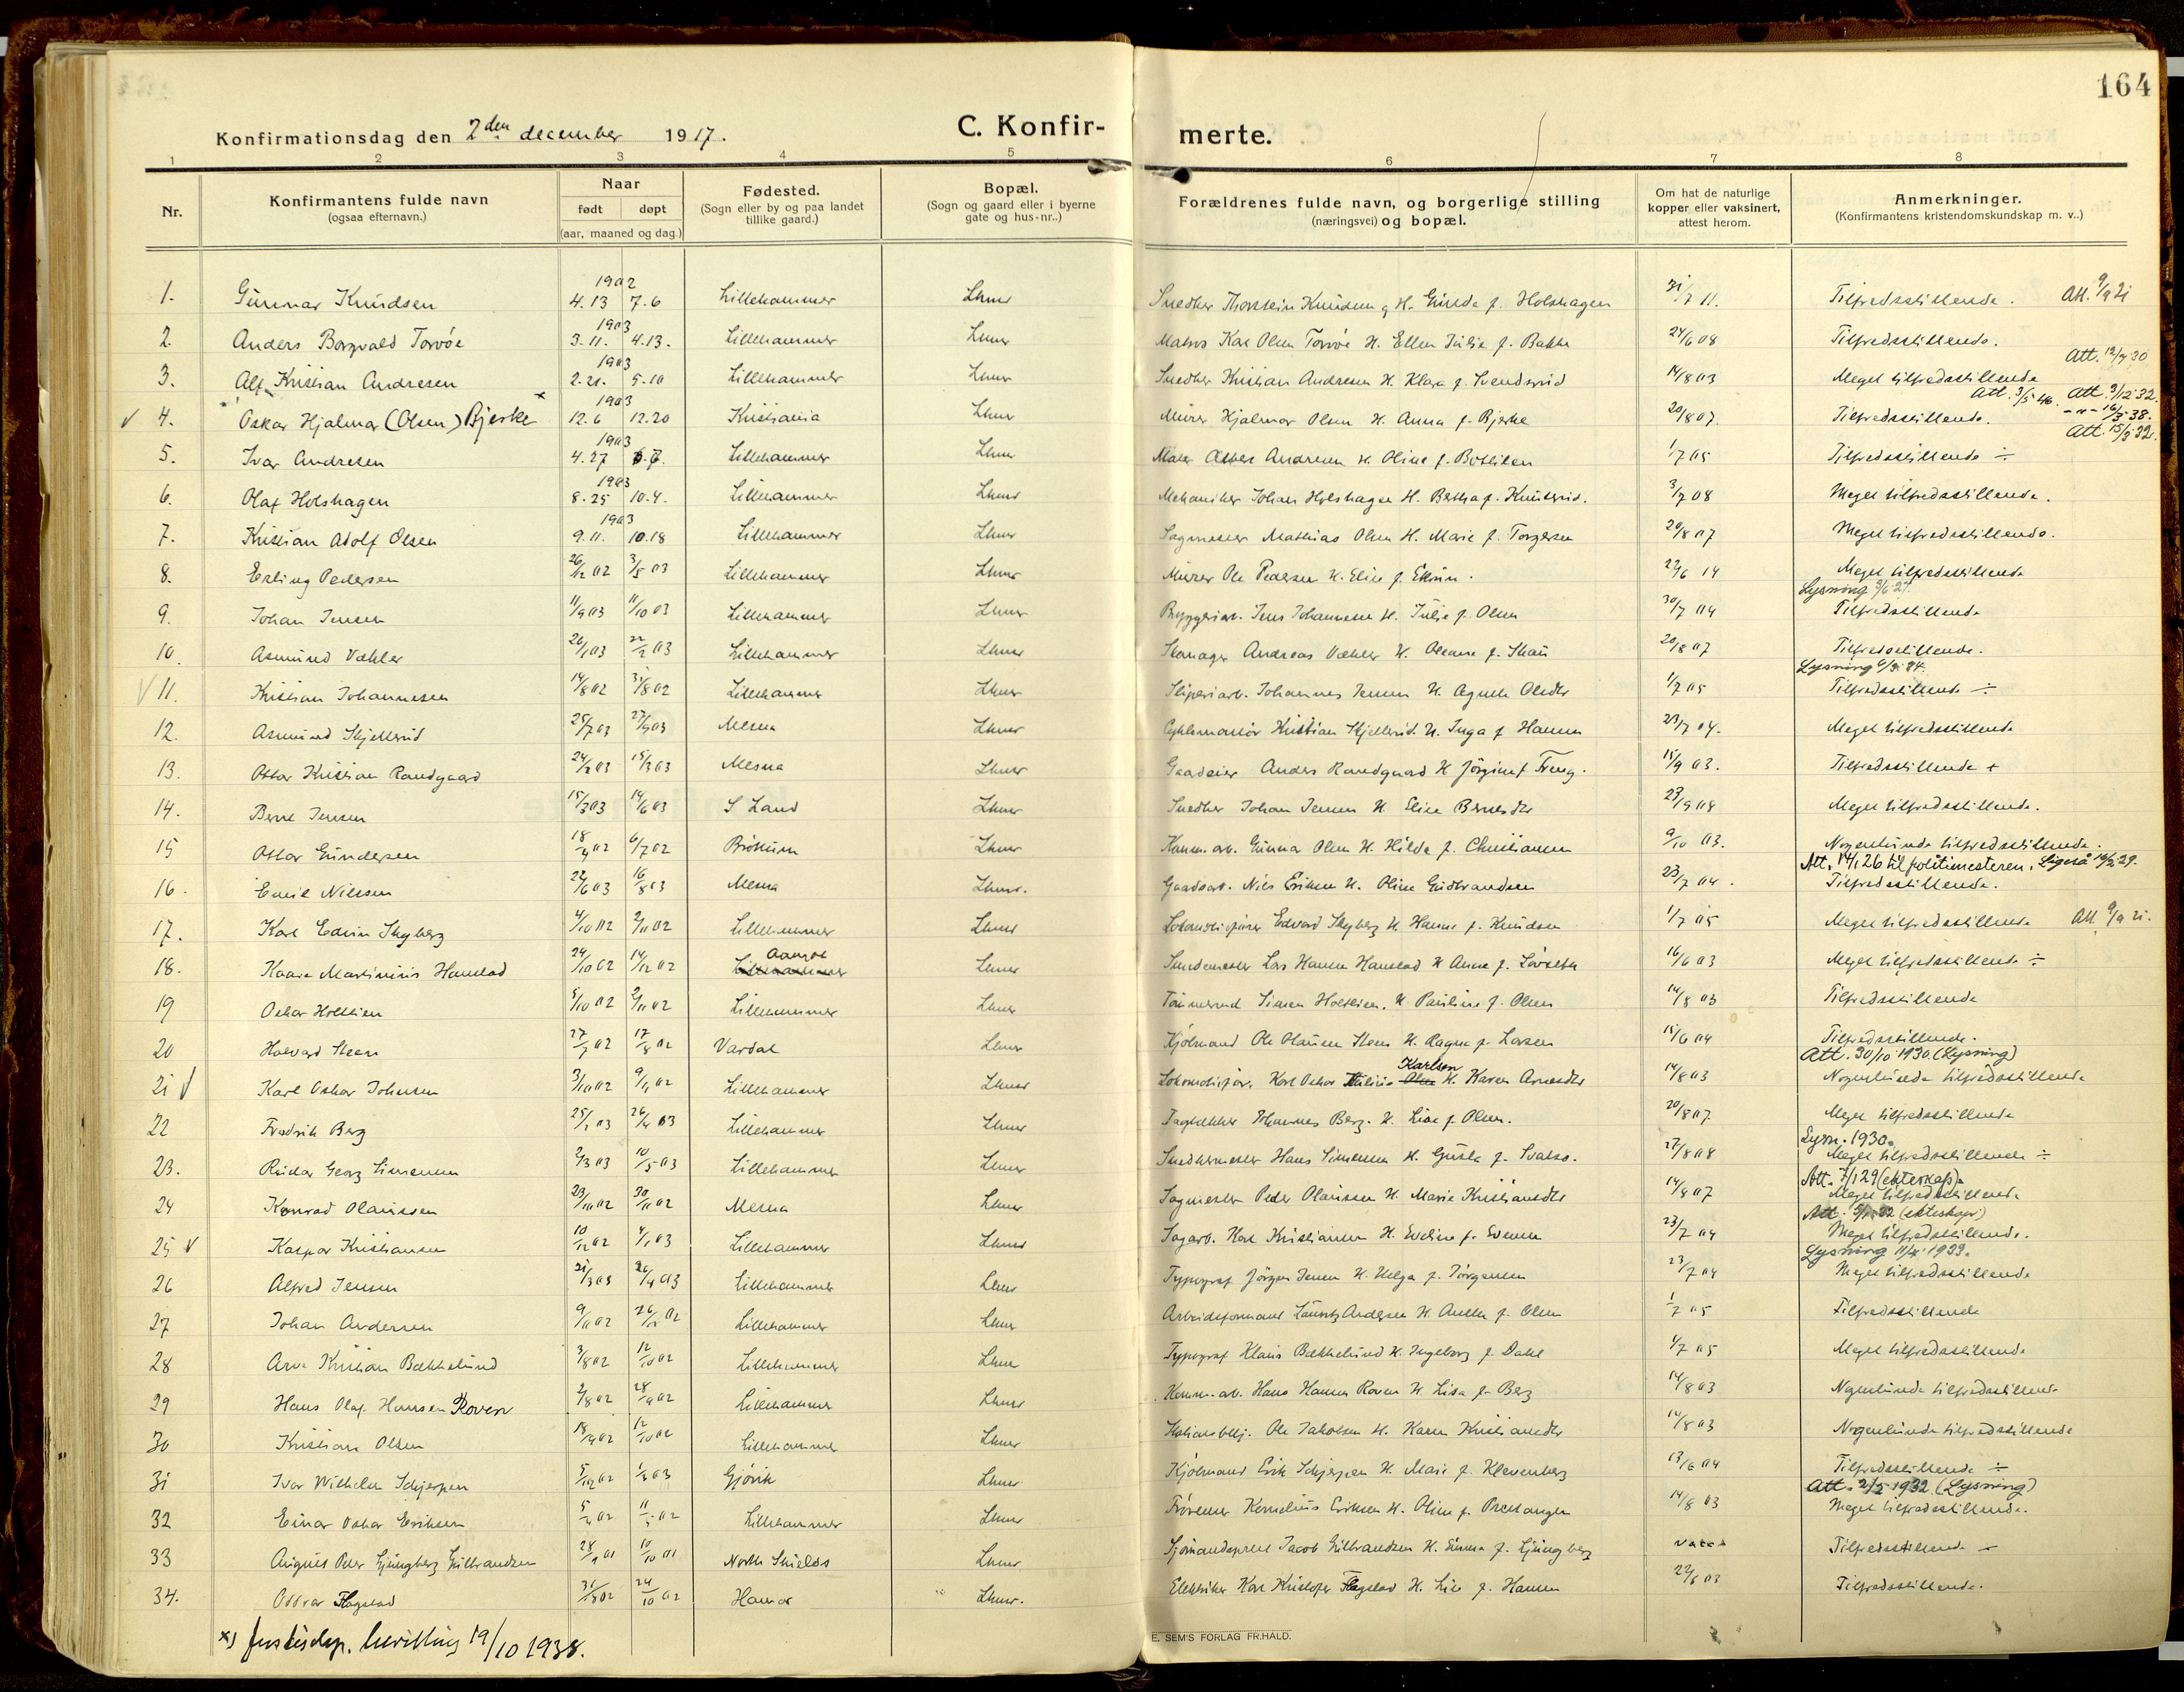 164
Konfirmationsdag den 2den december 1917.
C. Konfir-
merte.
1 2 3 4 5 6 7 8
Nr.
Konfirmantens fulde navn
(ogsaa efternavn.)
Naar
født døpt
(aar, maaned og dag.)
Fødested.
(Sogn eller by og paa landet
tillike gaard.)
Bopæl.
(Sogn og gaard eller i byerne
gate og hus-nr..)
Forældrenes fulde navn, og borgerlige stilling
(næringsvei) og bopæl.
Om hat de naturlige
kopper eller vaksinert,
attest herom.
Anmerkninger.
(Konfirmantens kristendomskundskap m. v..)
1902
1. Gunnar Knudsen 4.13 7.6 Lillehammer Lhmr Snedker Thorstein Knudsen H. Holshagen 7 11. Tilfredsstillende. Att. 9/9 21
1903
2. Anders Borgvald Torvöe 3.11. 4.13. Lillehammer Lhmr Karl Olsen Torvöe H. Ellen Julie f. Bakke 24/6 08 Tilfredsstillende.
1903 Att. 12/4 30
3. Alf Kristian Andresen 2.21. 5.10 Lillehammer Lhmr Snedker Kristian Andresen H. Klara f. 14/8 03 Meget tilfredsstillende
1903 Att. 3/5 46. Att. 9/12 32.
4. Oskar Hjalmar (Olsen) Bjerke x 12.6 12.20 Kristiania Lhmr Murer Hjalmar Olsen H. Anna f. Bjerke 20/8 07. Tilfredsstillende. - " - 16/3 38.
1903 Att. 15/3 32.
5. Ivar Andresen 4.27 6.7. Lillehammer Lhmr Maler Albert Andresen H. Oline f. 1/7 05 Tilfredsstillende ÷
1903
6. Olaf Holshagen 8.25 10.4. Lillehammer Lhmr Mekaniker Johan Holshagen H. Bertha f. 3/7 08 Meget tilfredsstillende.
1903
7. Kristian Adolf Olsen 9.11. 10.18 Lillehammer Lhmr Sagmester Mathias Olsen H. Marie f. Torgersen 20/8 07 Meget tilfredsstillende.
8. Erling Pedersen 26/12 02 3/5 03 Lillehammer Lhmr Murer Ole Pedersen H. Elise f. 22/6 14 Meget tilfredsstillende
Lysning
9. Johan Jensen 11/9 03 11/10 03 Lillehammer Lhmr Bryggeriarb. Jens Johannesen H. Julie f. Olsen 30/7 04 Tilfredsstillende
10. Asmund Væhler 26/1 03 22/2 03 Lillehammer Lhmr Skomager Andreas Væhler H. Oleane f. 20/8 07 Tilfredsstillende.
Lysning
11. Kristian Johannesen 14/8 02 31/8 02 Lillehammer Lhmr Sliperiarb. Johannes Jensen H. Agnethe 1/7 05 Tilfredsstillende ÷
12. Asmund Skjellerud 25/7 03 27/9 03 Mesna Lhmr Kristian Skjellerud H. Inga f. Hansen 23/7 04. Meget tilfredsstillende
13. Ottar Kristian Randgaard 24/2 03 15/3 03 Mesna Lhmr Gaardeier Anders Randgaard H. Jörgine f. Treng. 15/9 03. Tilfredsstillende +
14. Bernt Jensen 15/3 03 14/6 03 S Land Lhmr Snedker Johan Jensen H. Elise Berntsdtr 23/9 08 Meget tilfredsstillende.
15 Ottar Gundersen 18/4 02 6/7 02 Lhmr Komm. arb. Gunnar Olsen H. Hilda f. Christiansen 9/10 03. Nogenlunde tilfredsstillende.
Att. 14/1 26 til politimesteren.
16. Emil Nilssen 22/6 03 16/8 03 Mesna Lhmr. Gaardarb. Nils Eriksen H. Oline Gudbrandsen 23/7 04. Tilfredsstillende.
17. Karl Edvin Skyberg 4/10 02 2/11 02 Lillehammer Lhmr Lokomotivfører Edvard Skyberg H. Hanne f. Knudsen 1/7 05 Meget tilfredsstillende Att. 9/9 21.
18. Kaare Martinius Hamstad 24/10 02 14/12 02 Lillehammer Lhmr Lars Hansen Hamstad H Anne f. 16/6 03 Meget tilfredsstillende ÷
19 Oskar Holtlien 5/10 02 2/11 02 Lillehammer Lhmr Tömmermd Simen Holtlien. H. Pauline f. Olsen 14/8 03 Tilfredsstillende
20 Halvard Steen 27/7 02 17/8 02 Vardal Lhmr Kjölmand Ole Olausen Steen H. Ragna f. Larsen 15/6 04 Tilfredsstillende.
Karlsen Att. 30/10 1930. (Lysning)
21 Karl Oskar Johnsen 3/10 02 9/11 02 Lillehammer Lhmr Karl Oskar Julius Olsen H. Karen 14/8 03 Nogenlunde tilfredsstillende
22 Fredrik Berg 25/2 03 26/4 03 Lillehammer Lhmr Tagtækker Johannes Berg. H. Lise f. Olsen. 20/8 07. Meget tilfredsstillende
Lysn. 1930.
23. Reidar Georg Simensen 2/3 03 10/5 03 Lillehammer Lhmr Snedkermester Hans Simensen H. Gusta f. 27/8 08 Meget tilfredsstillende ÷
Att. 7/1 29 (ekteskap).
24 Konrad Olaussen 23/10 02 30/11 02 Mesna Lhmr Sagmester Peder Olaussen H. Marie Kristiansdtr 14/8 07 Meget tilfredsstillende
(ekteskap)
25 Kaspar Kristiansen 10/12 02 4/1 03 Lillehammer Lhmr Sagarb. Karl Kristiansen H. Eveline f. Svensen 23/7 04 Meget tilfredsstillende.
Lysning 11/4 1933.
26 Alfred Jensen 21/3 03 26/4 03 Lillehammer Lhmr Typograf Jörgen Jensen H. Helga f. Jörgensen 23/7 04 Meget tilfredsstillende
27 Johan Andersen 9/11 02 26/12 02 Lillehammer Lhmr Arbeidsformand Lauritz Andersen H. Anette f. Olsen 1/7 05 Tilfredsstillende
28 Arve Kristian Bækkelund 3/8 02 12/10 02 Lillehammer Lhmr Typograf Klaus Bækkelund H. Ingeborg f. Dahl 1/7 05 Meget tilfredsstillende
29 Hans Olaf Hansen Roven 2/8 02 28/9 02 Lillehammer Lhmr Komm. arb. Hans Hansen Roven H. Lisa f. Berg 14/8 03 Nogenlunde tilfredsstillende
30 Kristian Olsen 18/9 02 12/10 02 Lillehammer Lhmr Stationsbetj. Ole Jakobsen H. Karen Kristiansdtr 14/8 03 Nogenlunde tilfredsstillende
31 Ivar Wilhelm Schjerpen 5/12 02 1/3 03 Gjövik Lhmr Kjölmand Erik Schjerpen H. Marie f. Klevenberg 13/6 04 Tilfredsstillende ÷
Att. 2/5 1932. (Lysning)
32 Einar Oskar Eriksen 5/4 02 11/5 02 Lillehammer Lhmr Kornelius Eriksen H. Oline f. 14/8 03 Meget tilfredsstillende.
33 August Peter Ljungberg Gulbrandsen 28/9 01 10/10 01 North Shields Lhmr Sjömandsprest Jacob Gulbrandsen H. Emma f. Ljungberg Tilfredsstillende
34. Oddvar Flagstad 31/8 02 24/10 02 Hamar Lhmr. Elektriker Karl Kristofer Flagstad H. Lise f. Hansen 22/6 03 Tilfredsstillende.
x) Justisdep. bevilling 19/10 1938.
E. SEM'S FORLAG FR.HALD.